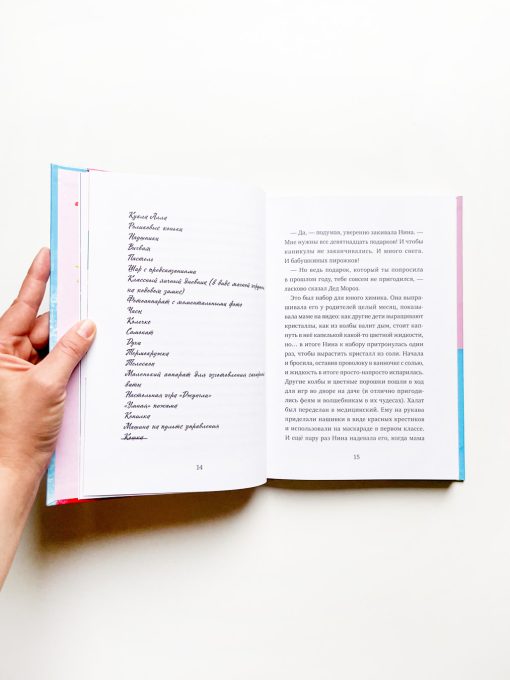 Кукла Алла
Роликовые коньки
Наушники
Вигвам
Пистолет
Шар с предсказаниями
Классный личный дневник (в виде мягкой
на кодовом замке)
Фотоаппарат с моментальными фото
Часы
Колечко
Самокат
Духи
Термокружка
Телескоп
Маленький аппарат для изготовления сахарной
ваты
Настольная игра
«Умная» пижама
Копилка
Машина на пульте управления
Кошка
14
— Да, — подумав, уверенно закивала Нина. —
Мне нужны все девятнадцать подарков! И чтобы
каникулы не заканчивались. И много снега.
И бабушкиных пирожков!
— Но ведь подарок, который ты попросила
в прошлом году, тебе совсем не пригодился, —
ласково сказал Дед Мороз.
Это был набор для юного химика. Она выпра-
шивала его у родителей целый месяц, показы-
вала маме на видео: как другие дети выращивают
кристаллы, как из колбы валит дым, стоит кап-
нуть в неё капелькой какой-то цветной жидкости,
но… в итоге Нина к набору притронулась один
раз, чтобы вырастить кристалл из соли. Начала
и бросила, оставив проволоку в баночке с солью,
и жидкость в итоге просто-напросто испарилась.
Другие колбы и цветные порошки пошли в ход
для игр во дворе на даче (и отлично пригоди-
лись феям и волшебникам в их чудесах). Халат
был переделан в медицинский. Ему на рукава
приделали нашивки в виде красных крестиков
и использовали на маскараде в первом классе.
И ещё пару раз Нина надевала его, когда мама
15